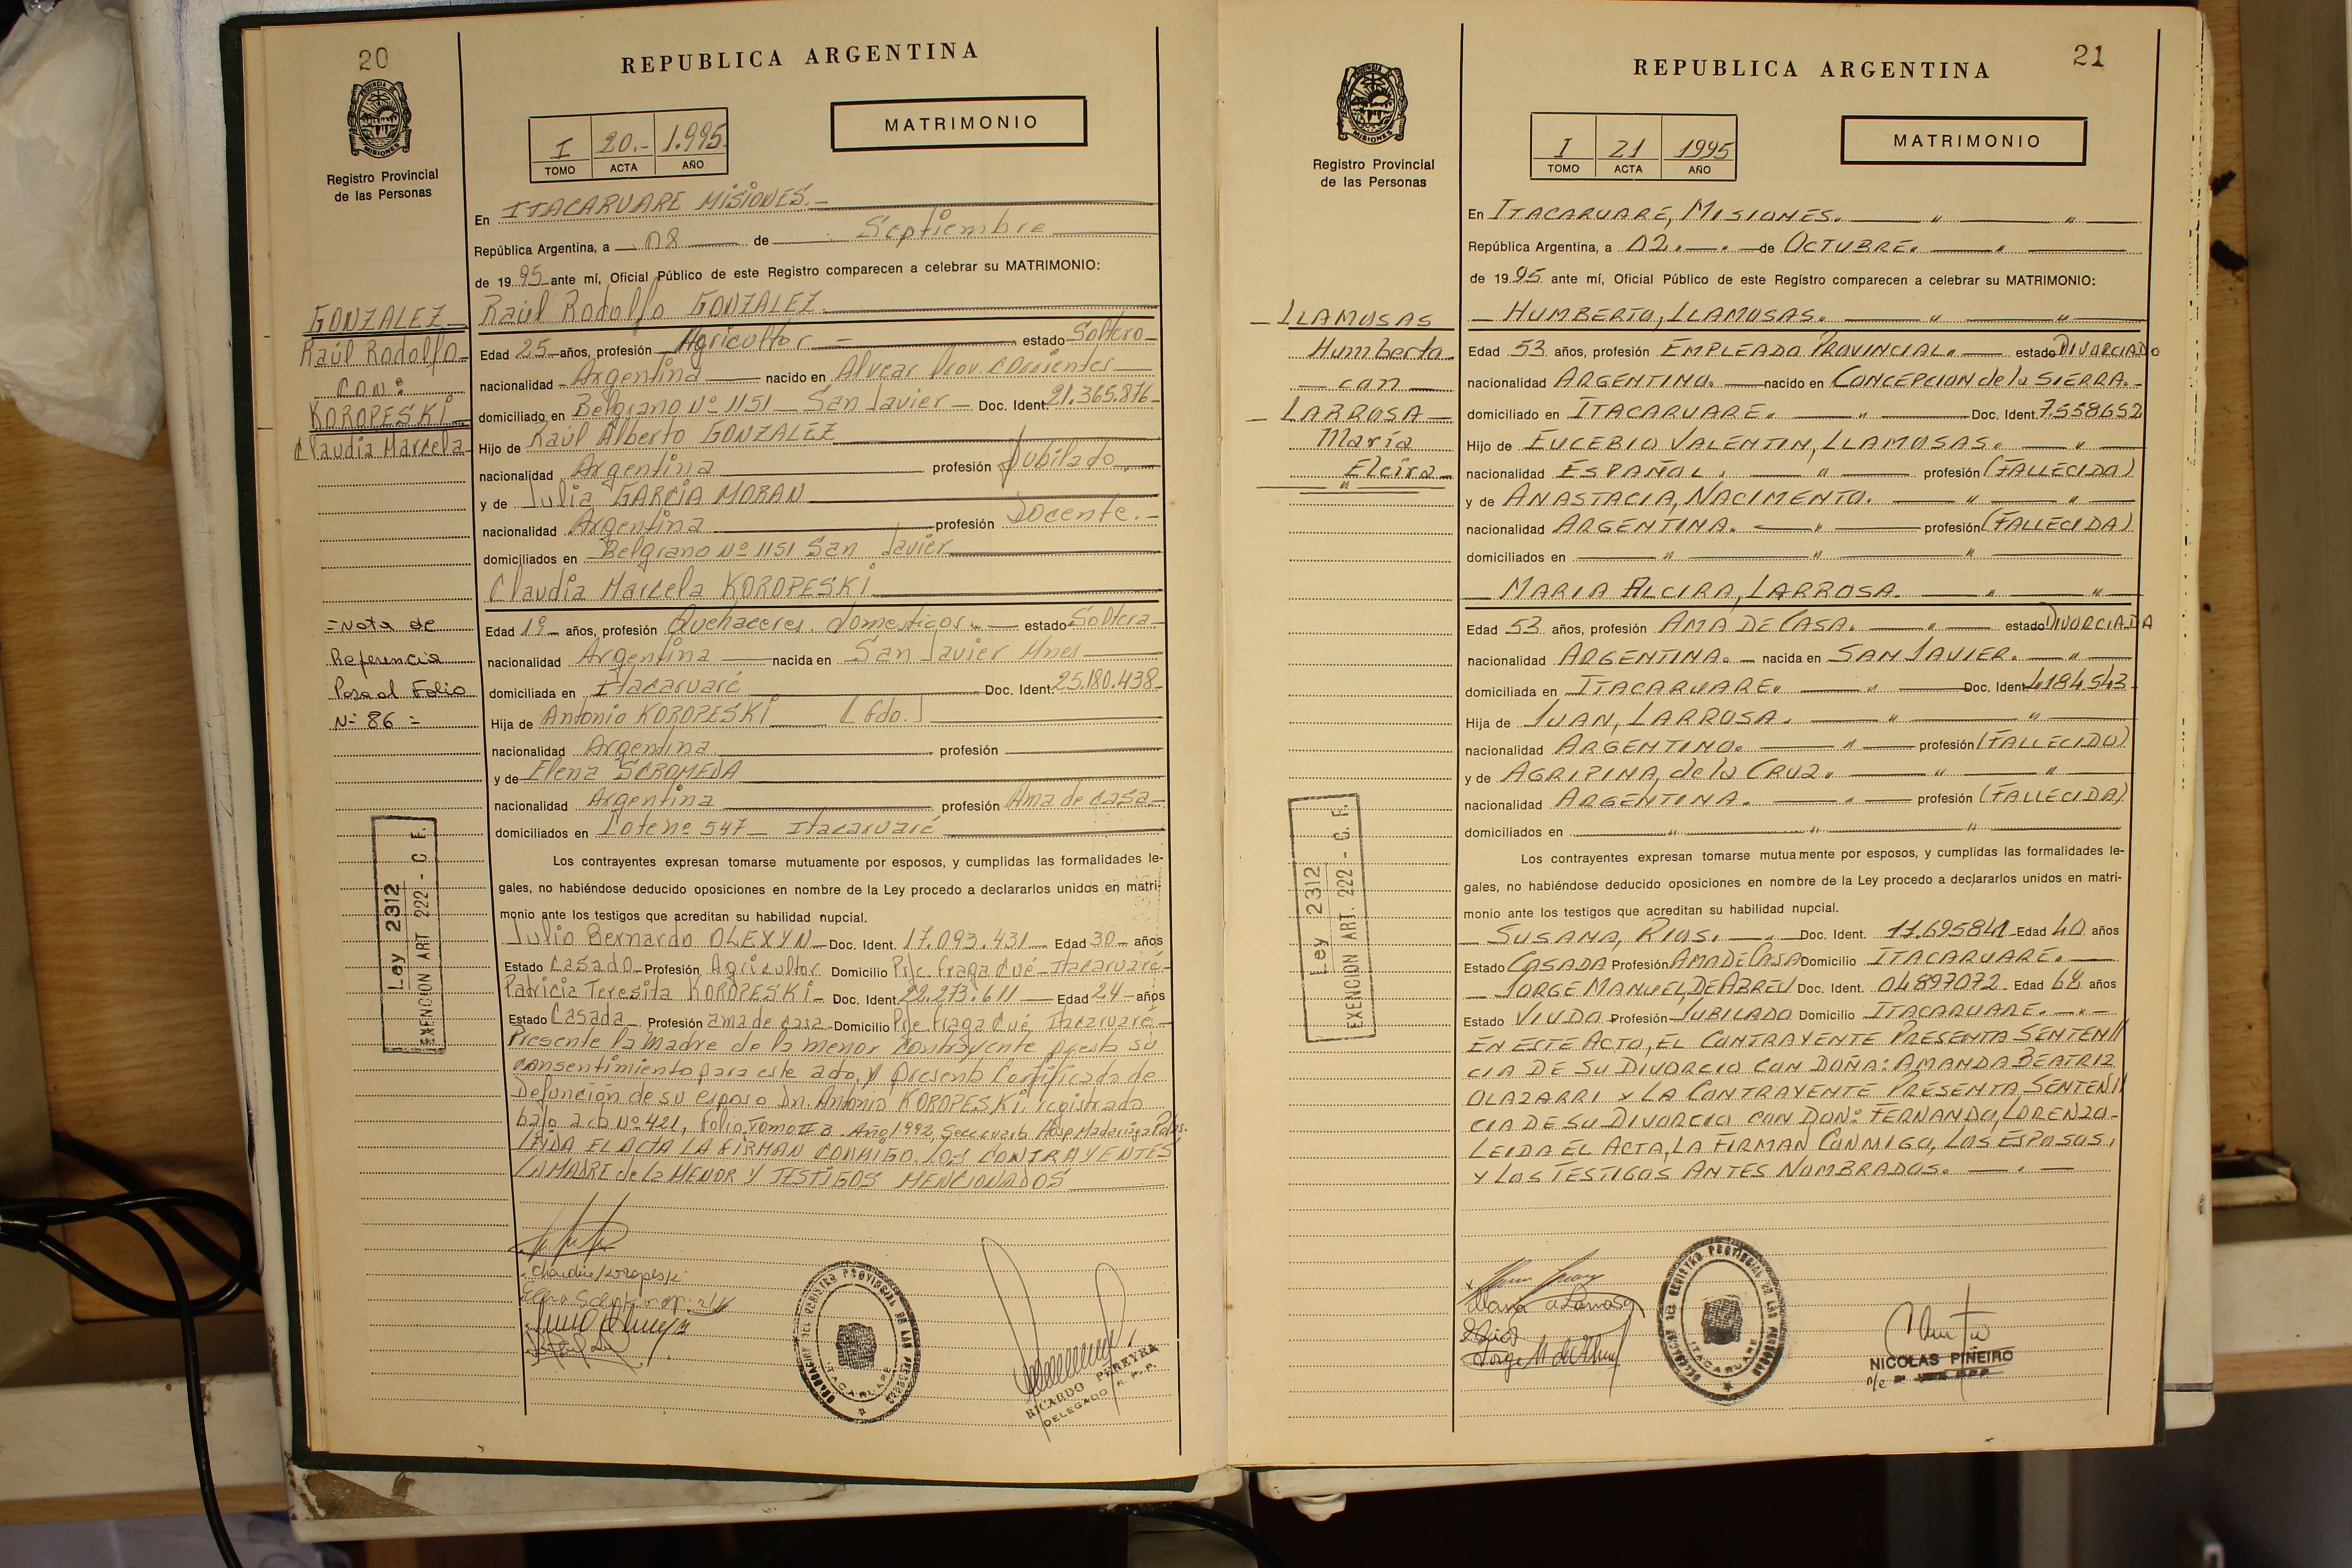 20
REPUBLICA ARGENTINA
MATRIMONIO
I 20.- 1.995.
TOMO ACTA AÑO
Registro Provincial
de las Personas
En ITACARUARE MISIONES.-
República Argentina, a 08 de Septiembre
de 1995 ante mí, Oficial Público de este Registro comparecen a celebrar su MATRIMONIO:
GONZALEZ
Raúl Rodolfo
con:
KOROPESKI
Claudia Marcela
Raúl Rodolfo GONZALEZ
Edad 25 años, profesión Agricultor estado Soltero
nacionalidad Argentina nacido en Alvear Prov. Corrientes
domiciliado en Belgrano Nº 1151 - San Javier - Doc. Ident. 21.365.876
Hijo de Raúl Alberto GONZALEZ
nacionalidad Argentina profesión Jubilado
y de Julia GARCIA MORAN
nacionalidad Argentina profesión Docente.-
domiciliados en Belgrano Nº 1151 San Javier
Claudia Marcela KOROPESKI
=Nota de
Referencia
Pasa al Folio
Nº 86=
Edad 19 años, profesión Quehaceres domesticos.- estado Soltera
nacionalidad Argentina nacida en San Javier Mnes
domiciliada en Itacaruaré Doc. Ident. 25.180.438
Hija de Antonio KOROPESKI (fdo.)
nacionalidad Argentina profesión
y de Elena SCROMEDA
nacionalidad Argentina profesión Ama de casa
domiciliados en Lote nº 547 - Itacaruaré
Ley 2312
EXENCION ART 222 - C F.
Los contrayentes expresan tomarse mutuamente por esposos, y cumplidas las formalidades le-
gales, no habiéndose deducido oposiciones en nombre de la Ley procedo a declararlos unidos en matri-
monio ante los testigos que acreditan su habilidad nupcial.
Julio Bernardo OLEXYN Doc. Ident. 17.093.431 Edad 30 años
Estado Casado Profesión Agricultor Domicilio Pje. fraga Cué - Itacaruaré
Patricia Teresita KOROPESKI Doc. Ident. 22.273.611 Edad 24 años
Estado Casada Profesión ama de casa Domicilio Pje fraga Cué, Itacaruaré
Presente la madre de la menor contrayente presta su
consentimiento para este acto, y presenta Certificado de
Defunción de su esposo Dn. Antonio KOROPESKI. registrada
bajo acta Nº 421, Folio Tomo II Año 1992, Hosp Madariaga
LEIDA EL ACTA LA FIRMAN CONMIGO, LOS CONTRAYENTES
LA MADRE de la MENOR Y TESTIGOS MENCIONADOS
Claudia Koropeski
DELEGACION DEL REGISTRO PROVINCIAL DE LAS PERSONAS
ITACARUARE
RICARDO PEREYRA
DELEGADO R. P. P.
21
REPUBLICA ARGENTINA
MATRIMONIO
I 21 1995
TOMO ACTA AÑO
Registro Provincial
de las Personas
En ITACARUARE, MISIONES.
República Argentina, a 02. de OCTUBRE.
de 1995 ante mí, Oficial Público de este Registro comparecen a celebrar su MATRIMONIO:
LLAMOSAS
Humberto
con
LARROSA
María
Elcira
HUMBERTO, LLAMOSAS.
Edad 53 años, profesión EMPLEADO PROVINCIAL. estado DIVORCIADO
nacionalidad ARGENTINO. nacido en CONCEPCION de la SIERRA.
domiciliado en ITACARUARE. Doc. Ident. 7558652
Hijo de EUCEBIO VALENTIN, LLAMOSAS.
nacionalidad ESPAÑOL. profesión (FALLECIDA)
y de ANASTACIA, NACIMENTO.
nacionalidad ARGENTINA. profesión (FALLECIDA)
domiciliados en
MARIA ELCIRA, LARROSA.
Edad 53 años, profesión AMA DE CASA. estado DIVORCIADA
nacionalidad ARGENTINA. nacida en SAN JAVIER.
domiciliada en ITACARUARE. Doc. Ident. 4184543
Hija de JUAN, LARROSA.
nacionalidad ARGENTINO. profesión (FALLECIDO)
y de AGRIPINA, de la CRUZ.
nacionalidad ARGENTINA. profesión (FALLECIDA)
domiciliados en
Ley 2312
EXENCION ART. 222 - C. F.
Los contrayentes expresan tomarse mutuamente por esposos, y cumplidas las formalidades le-
gales, no habiéndose deducido oposiciones en nombre de la Ley procedo a declararlos unidos en matri-
monio ante los testigos que acreditan su habilidad nupcial.
SUSANA, RIOS. Doc. Ident. 11.695841 Edad 40 años
Estado CASADA Profesión AMA DE CASA Domicilio ITACARUARE.
JORGE MANUEL, DE ABREU Doc. Ident. 04897072 Edad 68 años
Estado VIUDO Profesión JUBILADO Domicilio ITACARUARE.
EN ESTE ACTO, EL CONTRAYENTE PRESENTA SENTEN//
CIA DE SU DIVORCIO CON DOÑA: AMANDA BEATRIZ
OLAZARRI Y LA CONTRAYENTE PRESENTA SENTEN//
CIA DE SU DIVORCIO CON DON: FERNANDO, LORENZO-
LEIDA EL ACTA, LA FIRMAN CONMIGO, LOS ESPOSOS,
Y LOS TESTIGOS ANTES NOMBRADOS.
DELEGACION DEL REGISTRO PROVINCIAL DE LAS PERSONAS
ITACARUARE
NICOLAS PIÑEIRO